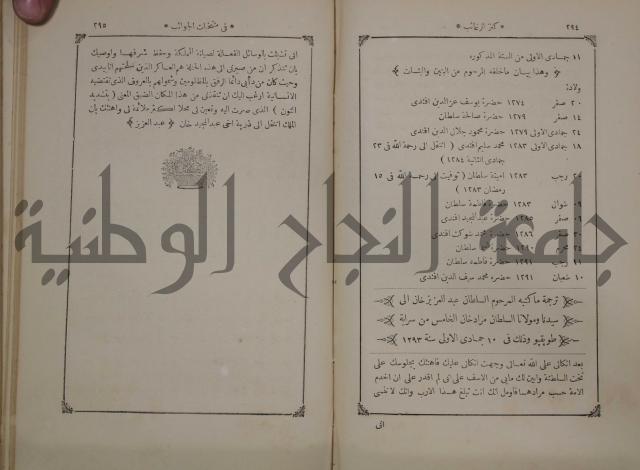 ٢٩٤ * كنز الرغائب *
١١ جمادى الاولى من السنة المذكورة
﴿ وهذا بيان ماخلفه المرحوم من البنين والبنات ﴾
ولادة
٢٠ صفر ١٢٧٤ حضرة يوسف عز الدين افندى
١٤ صفر ١٢٧٩ حضرة صالحة سلطان
٢٤ جمادى الاولى ١٢٧٩ حضرة محمود جلال الدين افندى
١٨ جمادى الاولى ١٢٨٣ محمد سليم افندى ( انتقل الى رحمة الله فى ٢٣
جمادى الثانية ١٢٨٤ )
رجب ١٢٨٣ امينة سلطان ( توفيت الى رحمة الله فى ١٥
رمضان ١٢٨٣ )
شوال ١٢٨٣ حضرة فاطمة سلطان
صفر ١٢٨٥ حضرة عبد المجيد افندى
٣٠ صفر ١٢٨٦ حضرة محمد شوكت افندى
محرم ١٢٩٠ حضرة سلطان
رجب ١٢٩١ حضرة فاطمة سلطان
١٠ شعبان ١٢٩١ حضرة محمد سيف الدين افندى
ترجمة ماكتبه المرحوم السلطان عبد العزيز خان الى
سيدنا ومولانا السلطان مراد خان الخامس من سراية
طوبقپو وذلك فى ١٠ جمادى الاولى سنة ١٢٩٣
بعد اتكالى على الله تعالى وجهت اتكالى عليك فاهنئك بجلوسك على
تخت السلطنة وابين لك مابى من الاسف على انى لم اقدر على ان اخدم
الامة حسب مرادها فاومل انك انت تبلغ هذا الارب وانك لا تنسى
انى
* فى منتخبات الجوائب * ٢٩٥
انى تشبثت بالوسائل الفعالة لصيانة المملكة وحفظ شرفها واوصيك
بان تتذكر ان من صيرنى الى هذه الحالة هم العساكر الذين سلحتهم انا بيدى
وحيث كان من دأبى دائما الرفق بالمظلومين وشمولهم بالمعروف الذى تقتضيه
الانسانية ارغب اليك ان تنقذنى من هذا المكان الضيق المعنى ( بتشديد
النون ) الذى صرت اليه وتعين لى محلا اكثر ملائمة لى واهنئك بان
الملك انتقل الى ذرية اخى عبد المجيد خان ﴿ عبد العزيز ﴾
جامعة النجاح الوطنية